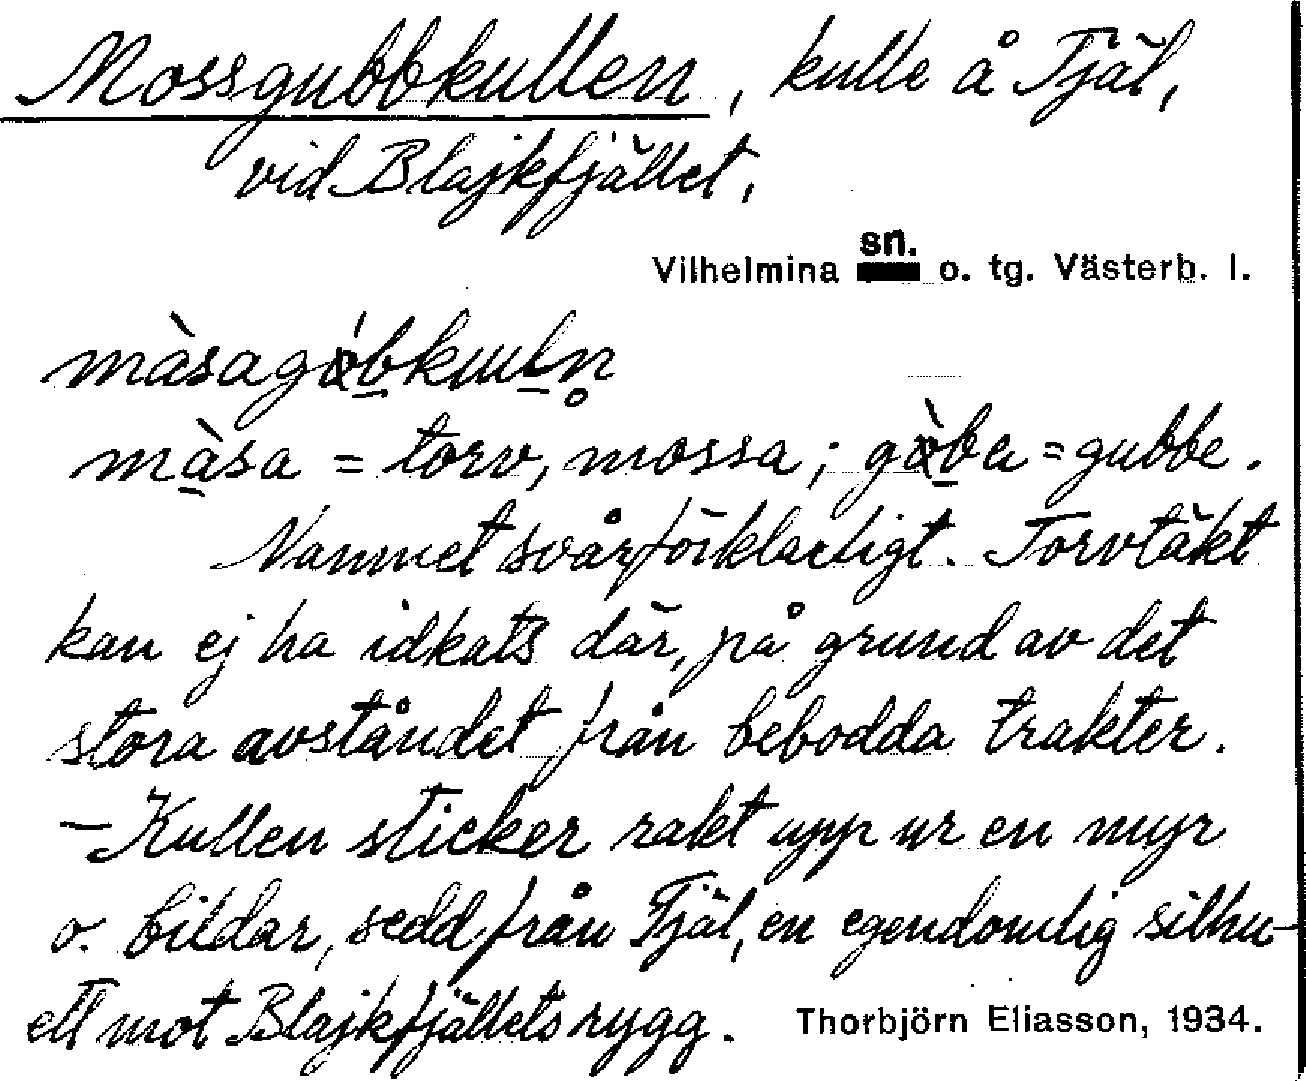 Mossgubbkullen, kulle å Tjäl,
vid Blajkfjället,
Vilhelmina sn. o. tg. Västerb. l.
màsagòbkuuln̥
màsa = torv, mossa; gòba = gubbe.
Namnet svårförklarligt. Torvtäkt
kan ej ha idkats där, på grund av det
stora avståndet från bebodda trakter.
– Kullen sticker rakt upp ur en myr
o. bildar, sedd från Tjäl, en egendomlig silhu-
ett mot Blajkfjällets rygg. Thorbjörn Eliasson, 1934.